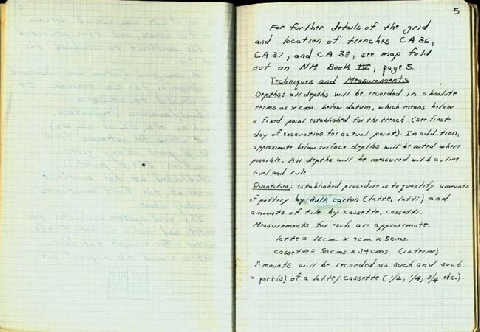 5
For further details of the grid
and location of trenches CA36,
CA37, and CA38, see map fold
out on NM Book III, page 5.
Techniques and Measurements
Depths: all depths will be recorded in absolute
terms as xx cms. below datum, which means below
a fixed point established for the trench (see first
day of excavation for actual point). In addition,
approximate below surface depths will be noted where
possible. All depths will be measured with a line
level and rule.
Quantities: established procedure is to quantify amounts
of pottery by bulk carton (latta, latte) and
amounts of tile by cassetta, cassette.
Measurements for each are approximate.
latta = cm x cm x cms
cassetta = 50 cms x 34 cms
Amounts will be recorded as such and such
a part(s) of a latta/cassetta (1/2, 1/4, 3/4 etc.)